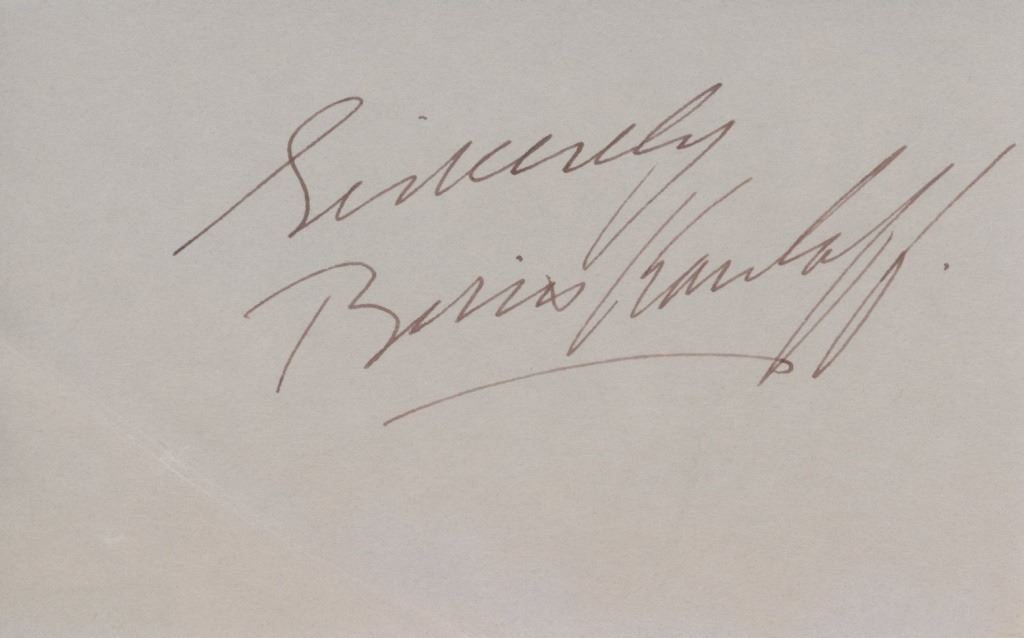 Sincerely
Boris Karloff.